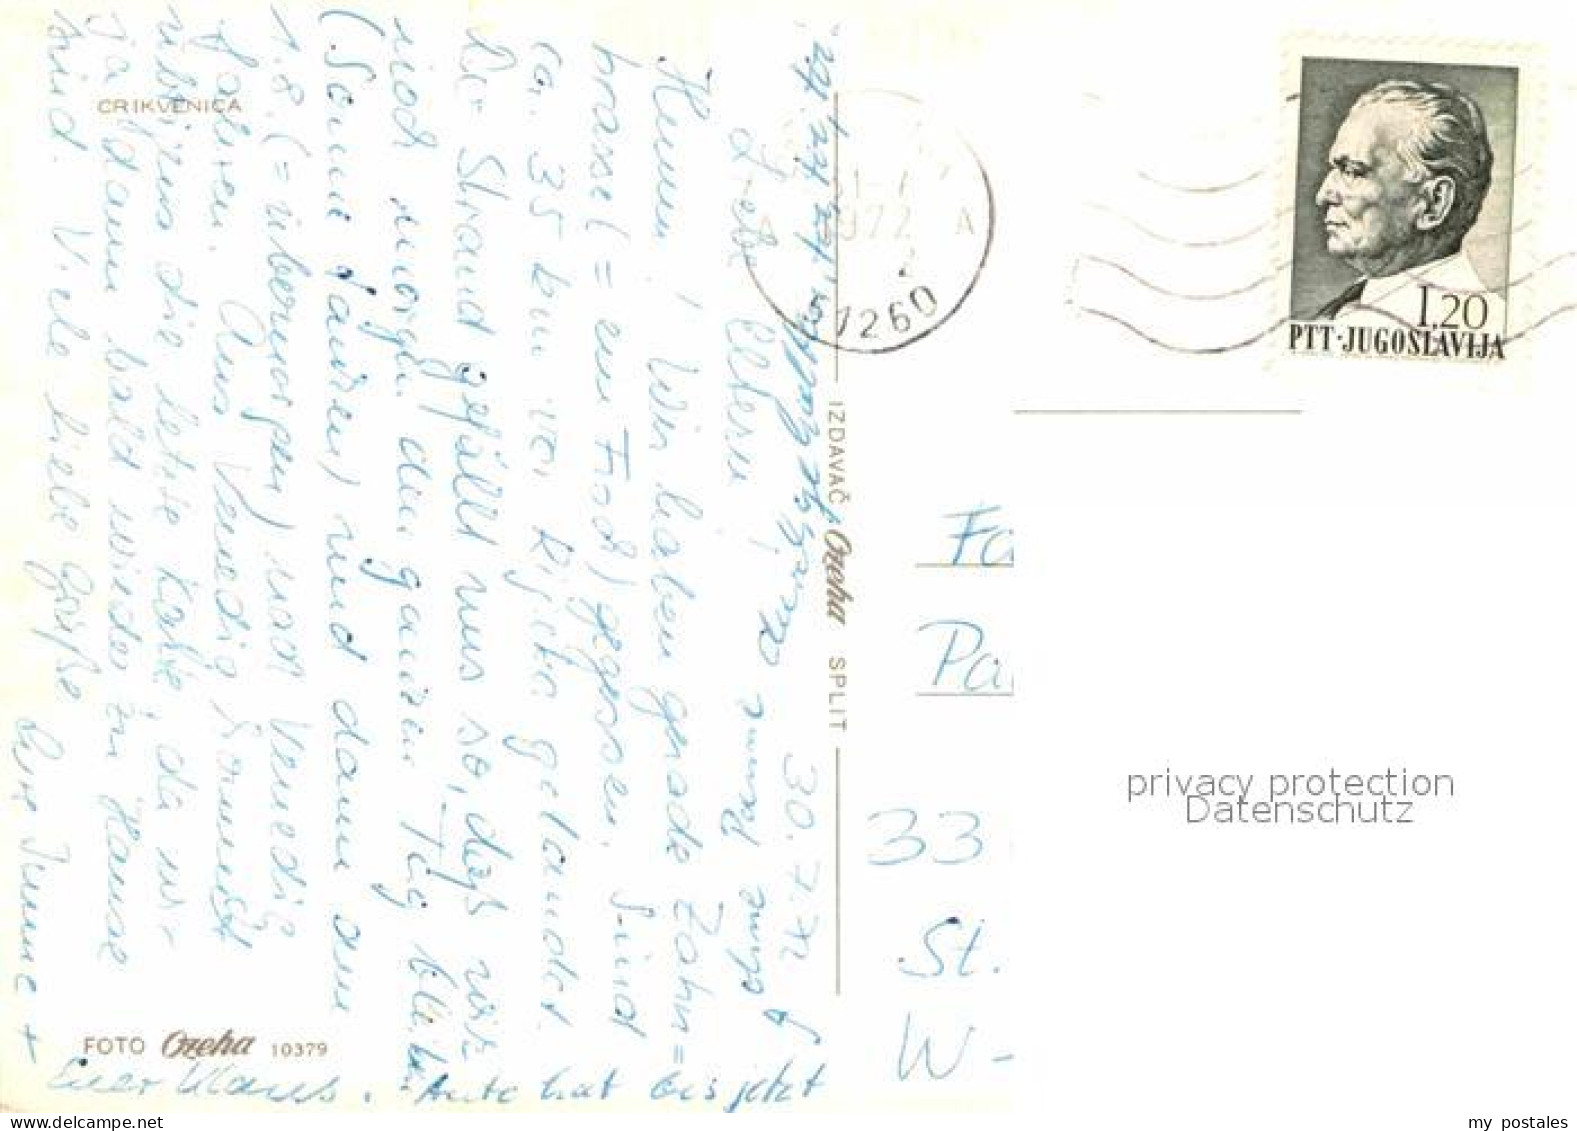 CRIKVENICA
30.7.72
Liebe Eltern!
Hmmm! Wir haben gerade Zahn=
brasse (= ein Fisch) gegessen. Sind
ca. 35 km vor Rijeka gelandet.
Der Strand gefällt uns so, daß wir
noch morgen den ganzen Tag bleiben
(Sonne tanken) und dann am
1.8. (= übermorgen) nach Venedig
fahren. Aus Venedig kommt
übrigens die letzte Karte, da wir
ja dann bald wieder zu Hause
sind. Viele liebe Grüße
Eure Imme +
Euer Klaus. Auto hat bis jetzt
FOTO Ozeha 10379
IZDAVAČ Ozeha SPLIT
1972
A
1260
1.20
PTT·JUGOSLAVIJA
Fa
Pa
33
St.
W-
privacy protection
Datenschutz
www.delcampe.net
my postales